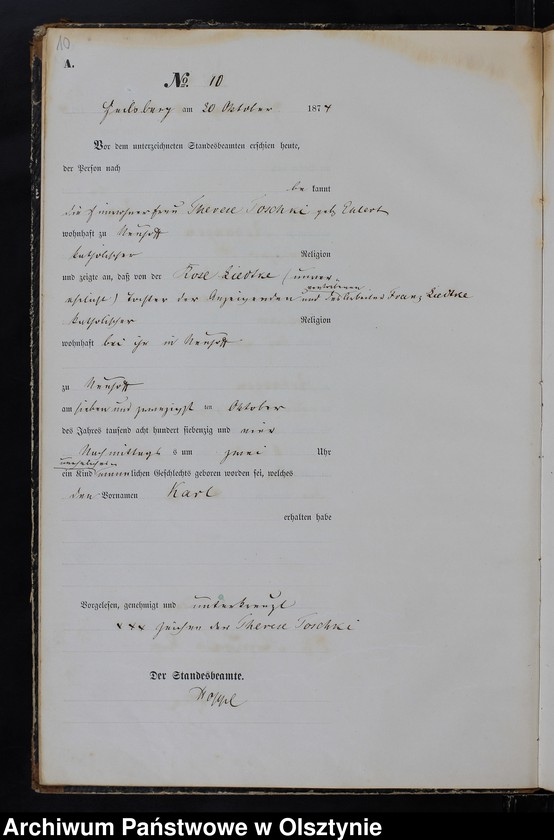 10
A.
No. 10
Heilsberg am 20 Oktober 1874
Vor dem unterzeichneten Standesbeamten erschien heute,
der Person nach
be kannt
die Einwohnerfrau Therese Toschki geb. Eulert
wohnhaft zu Neuhoff
katholischer Religion
und zeigte an, daß von der Rose Liedtke (unver-
ehelicht) Tochter der Anzeigenden und des verstorbenen Franz Liedtke
katholischer Religion
wohnhaft bei ihr in Neuhoff
zu Neuhoff
am sieben und zwanzigst ten Oktober
des Jahres tausend acht hundert siebenzig und vier
Nachmittags s um zwei Uhr
unehelich
ein Kind männlichen Geschlechts geboren worden sei, welches
den Vornamen Karl
erhalten habe
Vorgelesen, genehmigt und unterkreuzt
xxx Zeichen der Therese Toschki
Der Standesbeamte.
Hoppel
Archiwum Państwowe w Olsztynie